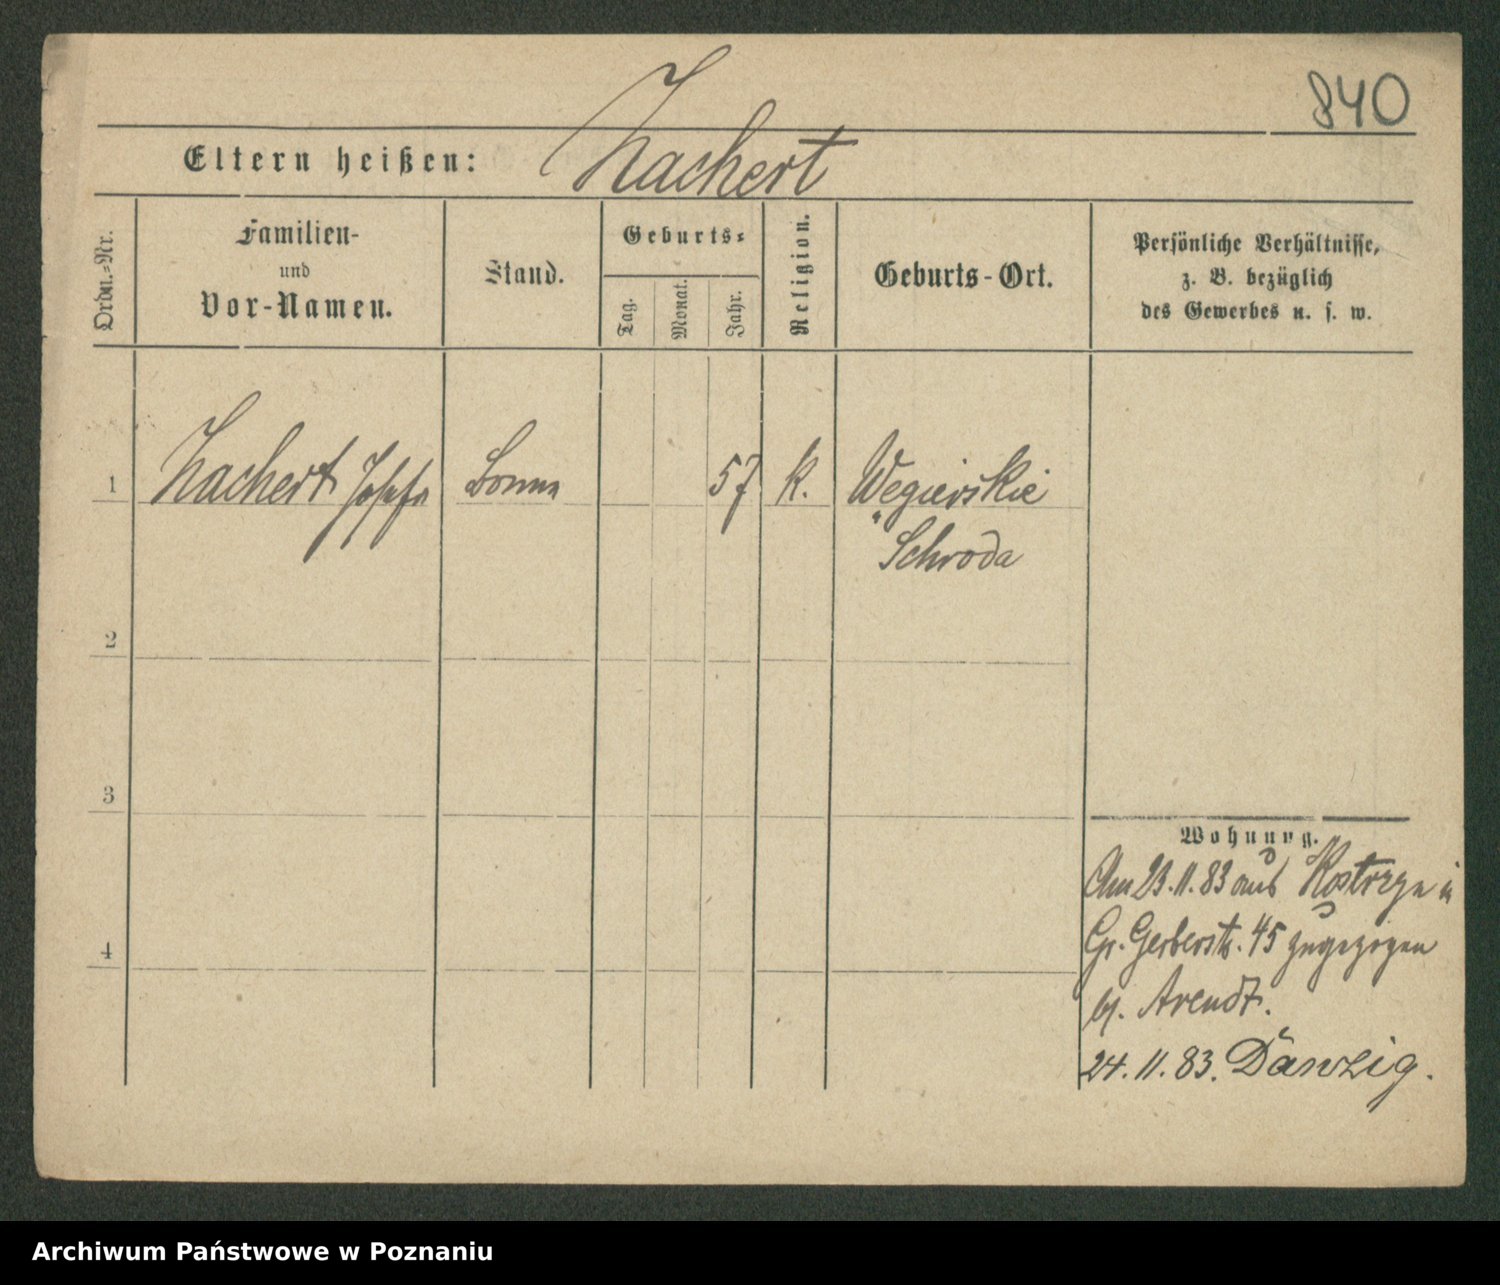 840
Eltern heißen: Zachert
Ordn.=Nr.
Familien-
und
Vor-Namen.
Stand.
Geburts=
Tag.
Monat.
Jahr.
Religion.
Geburts-Ort.
Persönliche Verhältnisse,
z. B. bezüglich
des Gewerbes u. s. w.
1 Zachert Josefa Bonne 57 k. Wegierskie
Schroda
2
3
4
Wohnung.
Am 23.11.83 aus Kostrzyn in
Gr. Gerberstr. 45 zugezogen
bj. Arendt.
24.11.83. Danzig.
Archiwum Państwowe w Poznaniu